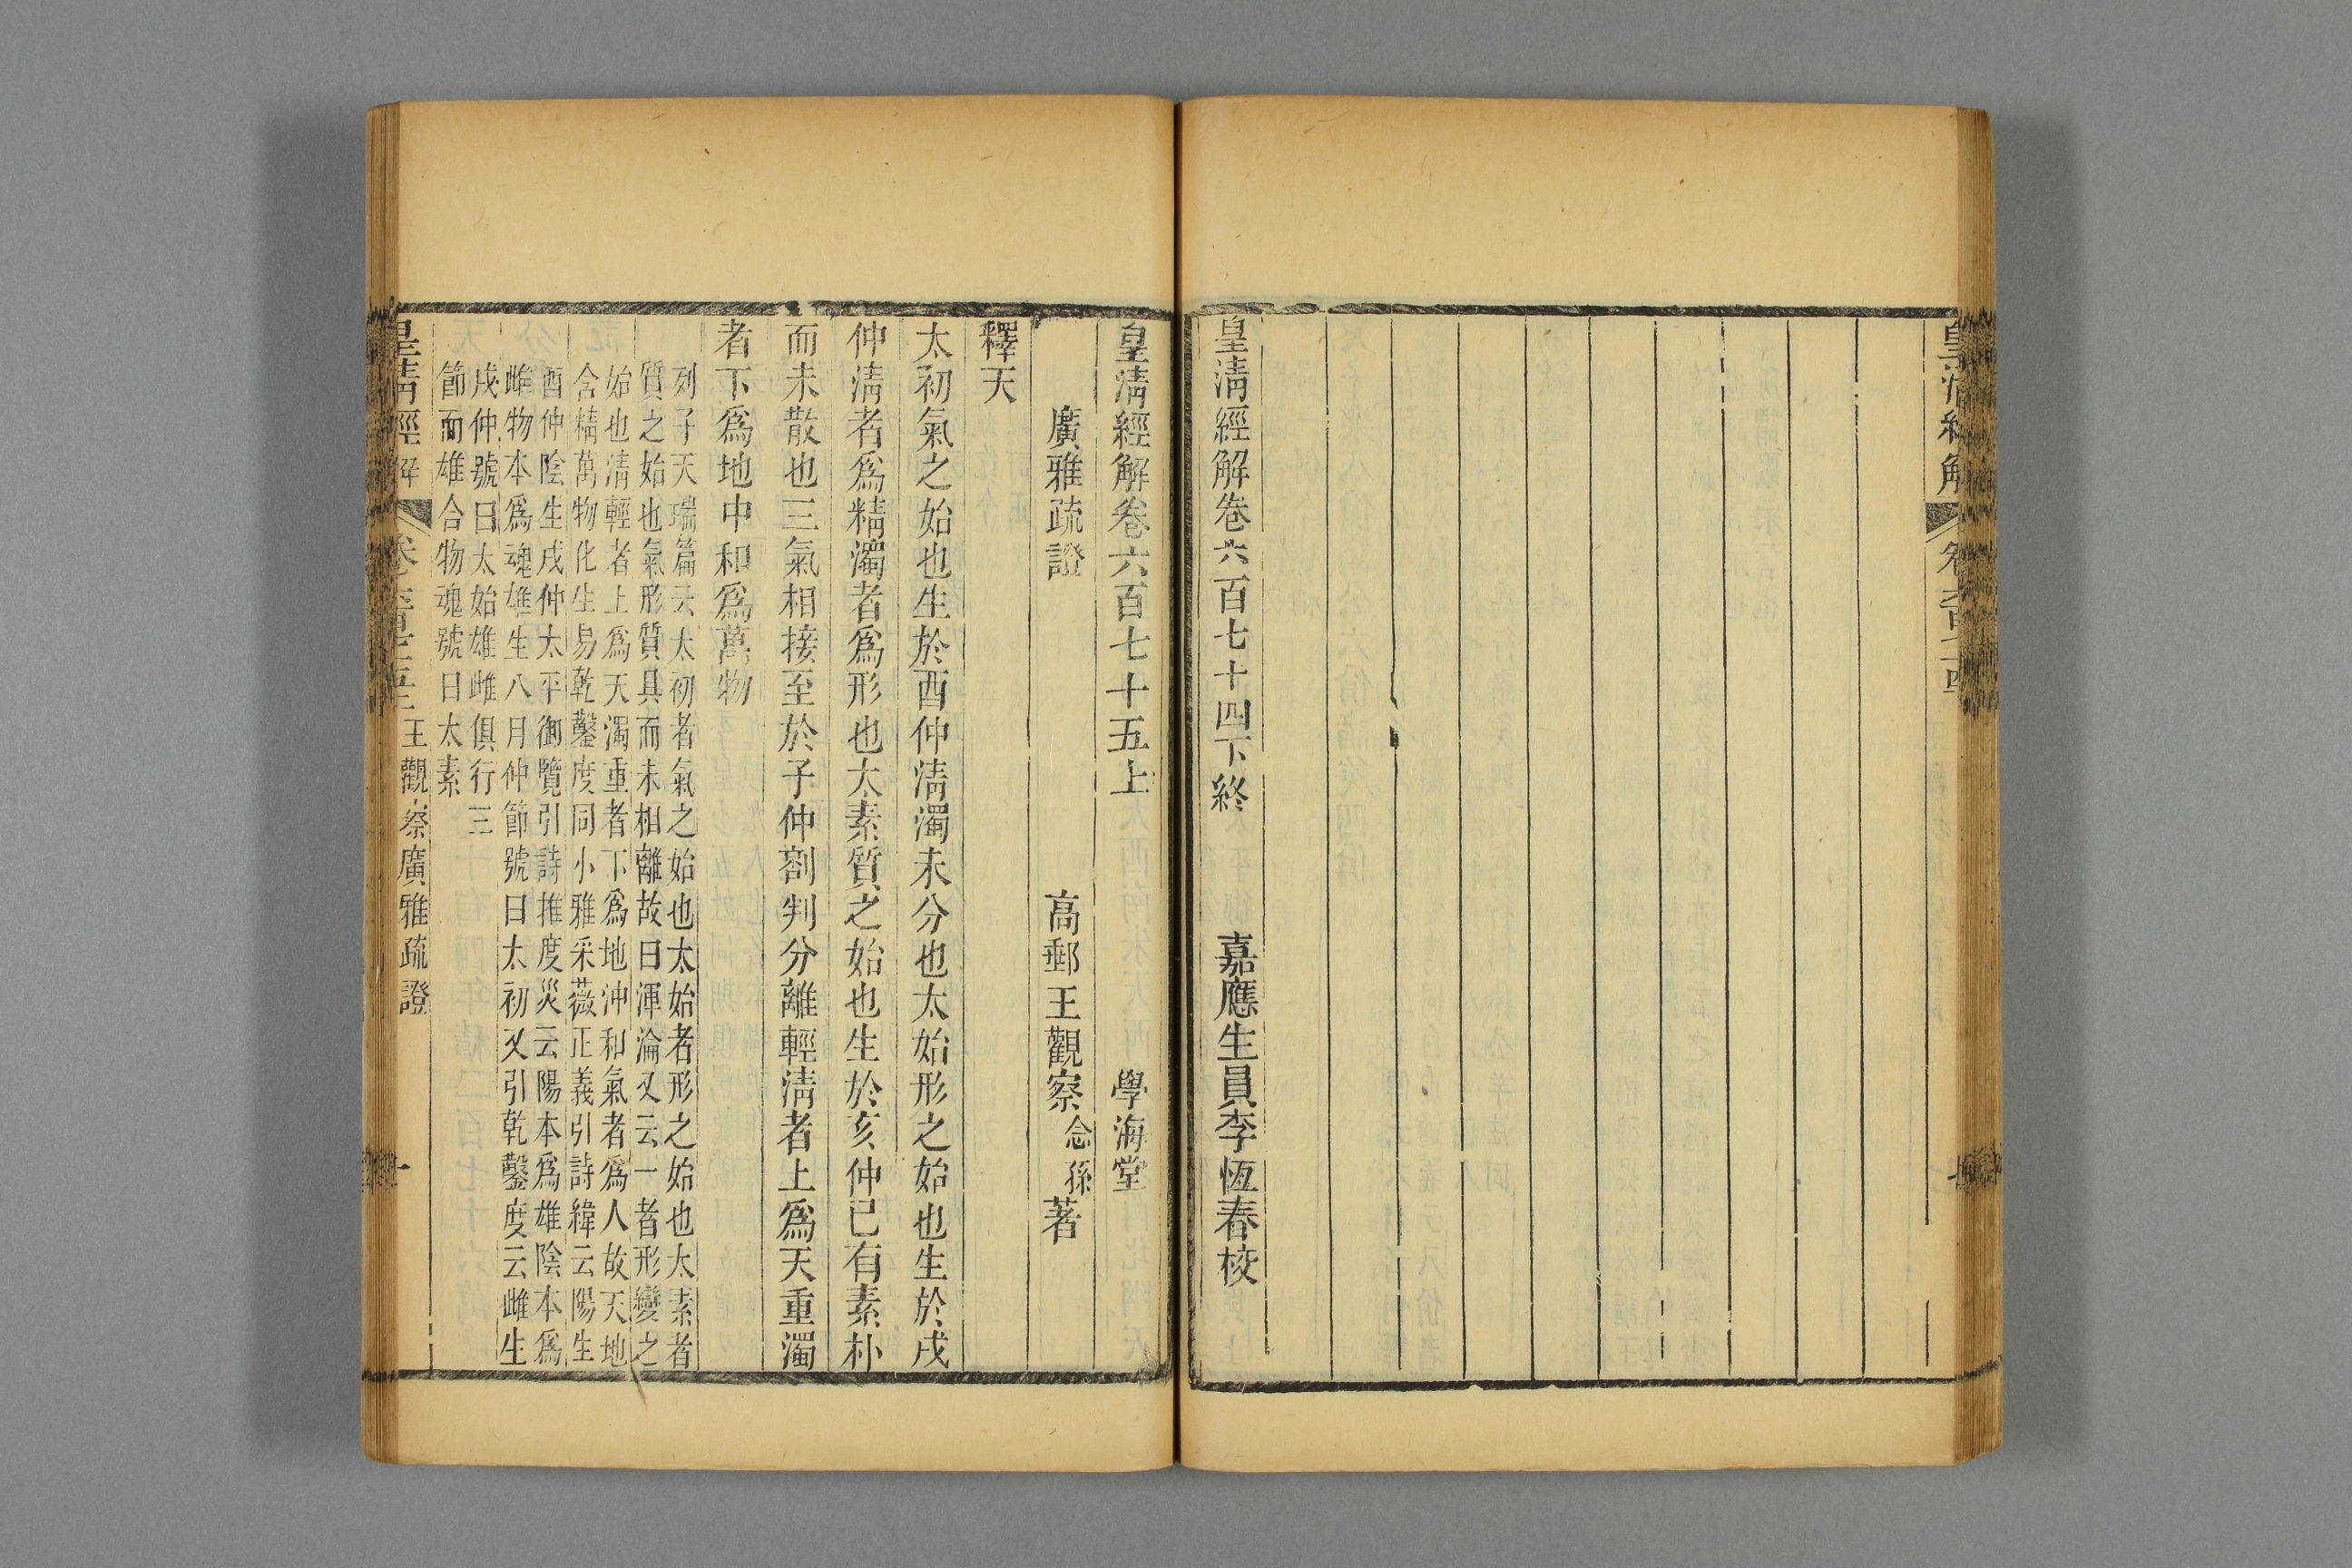 皇清經解
皇清經解卷六百七十四下終 嘉應生員李恆春校
皇清經解卷六百七十五上 學海堂
廣雅疏證 高郵王觀察念孫著
釋天
太初氣之始也生於酉仲清濁未分也太始形之始也生於戌
仲清者爲精濁者爲形也太素質之始也生於亥仲已有素朴
而未散也三氣相接至於子仲剖判分離輕清者上爲天重濁
者下爲地中和爲萬物
列子天瑞篇云太初者氣之始也太始者形之始也太素者
質之始也氣形質具而未相離故曰渾淪又云一者形變之
始也清輕者上爲天濁重者下爲地沖和氣者爲人故天地
含精萬物化生易乾鑿度同小雅采薇正義引詩緯云陽生
酉仲陰生戌仲太平御覽引詩推度災云陽本爲雄陰本爲
雌物本爲魂雄生八月仲節號曰太初又引乾鑿度云雌生
戌仲號曰太始雄雌俱行三
節而雄合物魂號曰太素
皇清經解 王觀察廣雅疏證 一